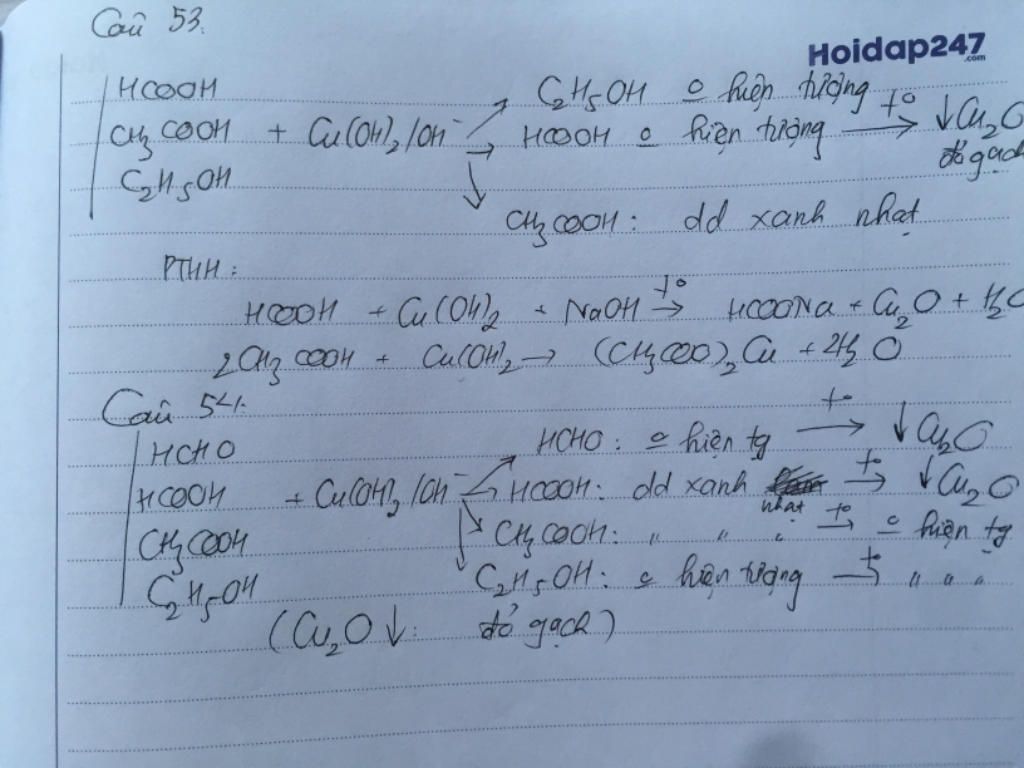 Câu 53.
Hoidap247
.com
HCOOH
CH3COOH + Cu(OH)2/OH⁻
C2H5OH
→ C2H5OH 0 hiện tượng
→ HCOOH 0 hiện tượng —t°→ ↓Cu2O
đỏ gạch
→ CH3COOH: dd xanh nhạt
PTHH:
HCOOH + Cu(OH)2 + NaOH —t°→ HCOONa + Cu2O + H2O
2CH3COOH + Cu(OH)2 → (CH3COO)2Cu + 2H2O
Câu 54.
HCHO
HCOOH + Cu(OH)2/OH⁻
CH3COOH
C2H5OH
→ HCHO: 0 hiện tg —t°→ ↓Cu2O
→ HCOOH: dd xanh nhạt —t°→ ↓Cu2O
→ CH3COOH: " " " —t°→ 0 hiện tg
→ C2H5OH: 0 hiện tượng —t→ " " "
(Cu2O↓: đỏ gạch)